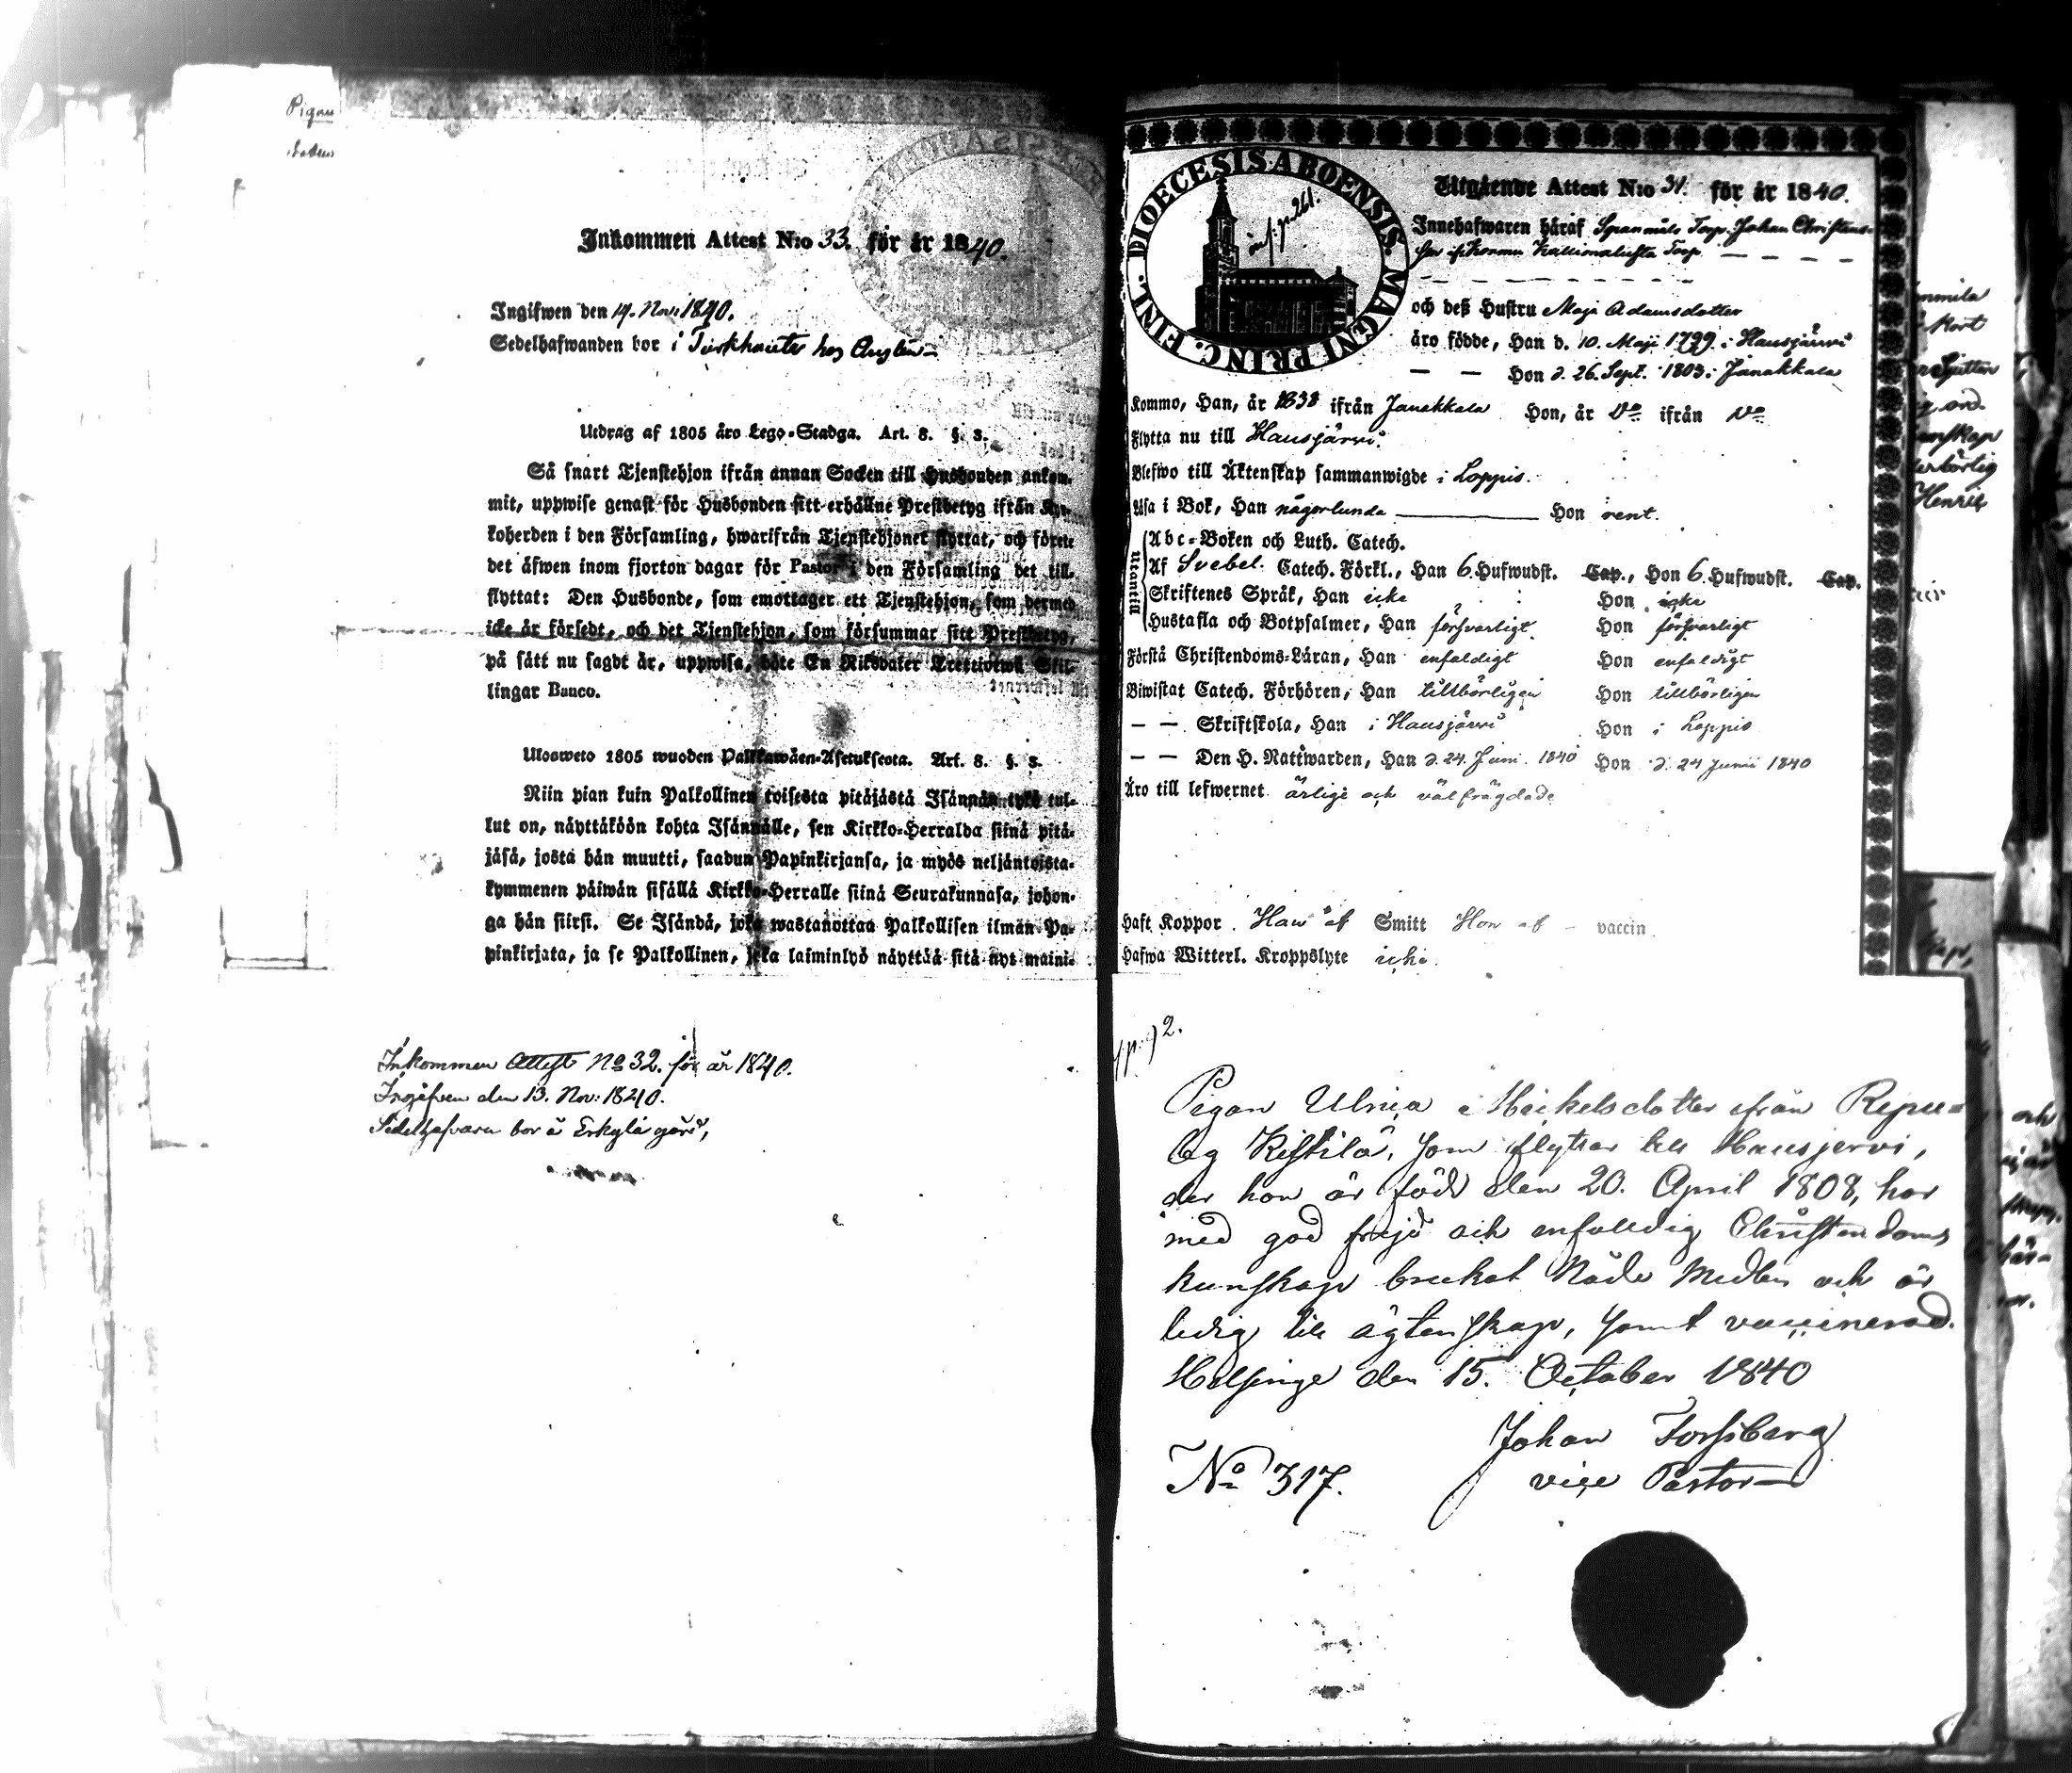 Pigan
Inkommen Attest N:o 33. för år 1840.
Ingifwen den 14. Nov: 1840.
Sedelhafwanden bor i Turkhauta hos
Utdrag af 1805 års Lego-Stadga. Art. 8. §. 3.
Så snart Tjenstehjon ifrån annan Socken till Husbonden ankom-
mit, uppwise genast för Husbonden sitt erhållne Prestbetyg ifrån Kyr-
koherden i den Församling, hwarifrån Tjenstehjonet flyttat, och förete
det äfwen inom fjorton dagar för Pastor i den Församling det till-
flyttat: Den Husbonde, som emottager ett Tjenstehjon, som dermed
icke är försedt, och det Tjenstehjon, som försummar sitt Prestbetyg,
på sätt nu sagdt är, uppwisa, böte En Riksdaler Trettiotwå Skil-
lingar Banco.
Ulosweto 1805 wuoden Palkkawäen-Asetuksesta. Art. 8. §. 3.
Niin pian kuin Palkollinen toisesta pitäjästä Isännän tykö tul-
lut on, näyttäköön kohta Isännälle, sen Kirkko-Herralda siinä pitä-
jäsä, josta hän muutti, saadun Papinkirjansa, ja myös neljäntoista-
kymmenen päiwän sisällä Kirkko-Herralle siinä Seurakunnasa, johon-
ga hän siirsi. Se Isändä, joka wastanottaa Palkollisen ilmän Pa-
pinkirjata, ja se Palkollinen, joka laiminlyö näyttää sitä nyt maini-
Inkommen Attest No 32. för år 1840.
Ingifven den 13. Nov: 1840.
Sedelhafvaren bor å Erkylä gård,
DIOECESIS ABOENSIS. MAGNI PRINC. FINL.
inf. p. 261.
Utgående Attest N:o 31. för år 1840.
Innehafwaren häraf Spanmåls Torp. Johan Christians-
son if. Kormu Kallionalusta Torp
och deß Hustru Maja Adamsdotter
äro födde, Han d. 10. Maji 1799. i Hausjärvi
— — Hon d. 26. Sept. 1803. i Janakkala
Kommo, Han, år 1838 ifrån Janakkala Hon, år Do ifrån Do
Flytta nu till Hausjärvi.
Blefwo till Äktenskap sammanwigde i Loppis.
Läsa i Bok, Han någorlunda — Hon rent.
Utantill
Abc-Boken och Luth. Catech.
Af Svebel. Catech. Förkl., Han 6. Hufwudst. Cap., Hon 6. Hufwudst. Cap.
Skriftenes Språk, Han icke Hon icke
Hustafla och Botpsalmer, Han försvarligt. Hon försvarligt
Förstå Christendoms-Läran, Han enfaldigt Hon enfaldigt
Biwistat Catech. Förhören, Han tillbörligen Hon tillbörligen
— — Skriftskola, Han i Hausjärvi Hon i Loppis
— — Den H. Nattwarden, Han d. 24. Juni 1840 Hon d. 24 Junii 1840
Äro till lefwernet ärlige och välfrägdade
Haft Koppor Han af Smitt Hon af – vaccin
Hafwa Witterl. Kroppslyte icke.
p. 92.
Pigan Ulrica Michelsdotter ifrån Repu-
by Kistilä, som flyttar till Hausjervi,
der hon är född den 20. April 1808, har
med god frejd och enfalldig Christendoms
kunskap brukat Nåde Medlen och är
ledig till ägtenskap, samt vaccinerad.
Helsinge den 15. October 1840
Johan Forssberg
vice Pastor
No 317.